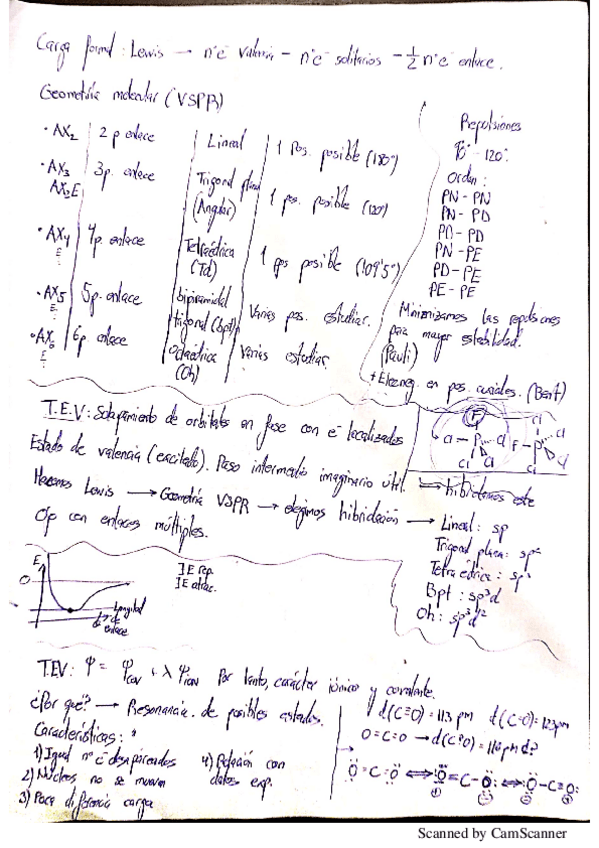 Carga formal: Lewis → nºe⁻ valencia - nºe⁻ solitarios - 1/2 nºe⁻ enlace.
Geometría molecular (VSPR)
· AX₂ 2 p enlace Lineal 1 pos. posible (180º)
· AX₃ 3p. enlace Trigonal plana 1 pos. posible (120º)
AX₂E (Angular)
· AX₄ 4p. enlace Tetraédrica 1 pos posible (109'5º)
E (Td)
· AX₅ 5p. enlace bipiramidal Varias pos. estudiar.
E trigonal (bpt)
· AX₆ 6p enlace octaédrica Varias estudiar.
E (Oh)
Repulsiones
90º - 120º
Orden:
PN - PN
PN - PD
PD - PD
PN - PE
PD - PE
PE - PE
Minimizamos las repulsiones
para mayor estabilidad.
(Pauli)
+ Elecneg. en pos. axiales. (Bent)
F Cl
Cl - P - Cl F - P Cl
Cl Cl Cl
T.E.V: Solapamiento de orbitales en fase con e⁻ localizados
Estado de valencia (excitado). Paso intermedio imaginario útil. hibridamos este
Hacemos Lewis → Geometría VSPR → elegimos hibridación → Lineal: sp
Ojo con enlaces múltiples.
Trigonal plana: sp²
Tetraédrica: sp³
Bpt: sp³d
Oh: sp³d²
E
0
Longitud
de
enlace
E rep.
E atrac.
T.E.V: Ψ = Ψcov + λ Ψion Por tanto, carácter iónico y covalente.
¿Por qué? → Resonancia de posibles estados.
Características:
1) Igual nº e⁻ desapareados
2) Núcleos no se muevan
3) Poca diferencia carga
4) Relación con
datos exp.
d(C≡O) = 113 pm d(C=O) = 123pm
O=C=O → d(C=O) = 116 pm d?
O=C=O ↔ O≡C-O: ↔ :O-C≡O:
Scanned by CamScanner